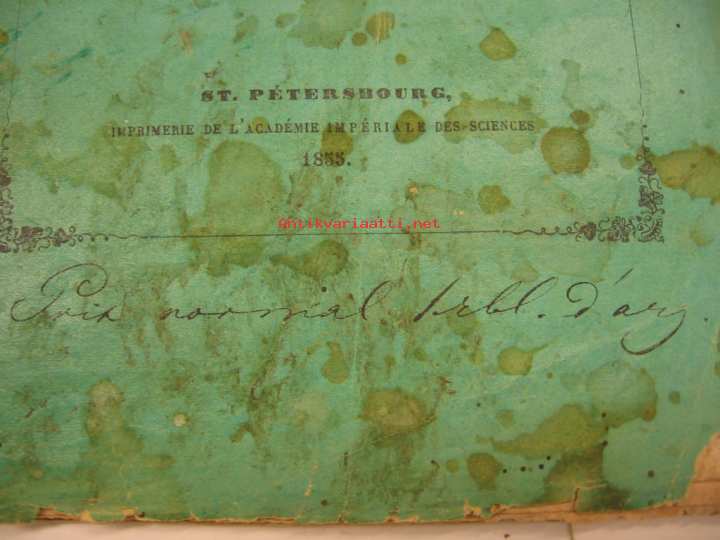 ST. PÉTERSBOURG,
IMPRIMERIE DE L'ACADÉMIE IMPÉRIALE DES SCIENCES
1855.
Antikvariaatti.net
Prix normal 1 rbl. d'arg.